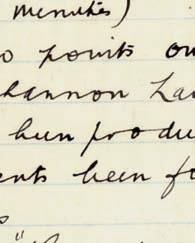 minutes)
o points ou
hannon La
been produ
ents been fo
s